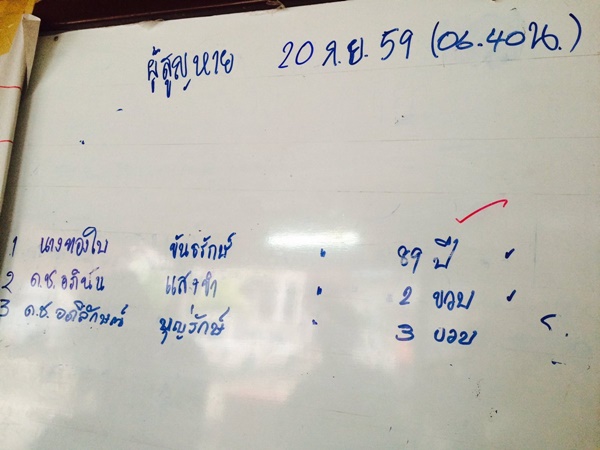 ผู้สูญหาย 20 ก.ย. 59 (06.40น.)
1 นางทองใบ ขันธรักษ์ 89 ปี
2 ด.ช.อภินัน แสงขำ 2 ขวบ
3 ด.ช. บุญรักษ์ 3 ขวบ